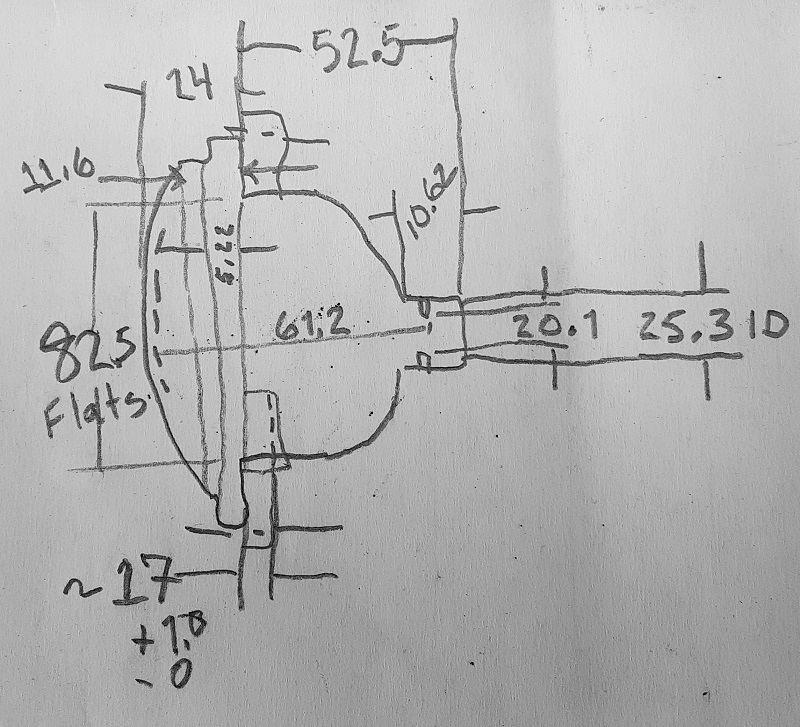 52.5
24
11.6
10.62
5.22
61.2
20.1
25.3 ID
82.5
Flats
~17
+1.0
-0